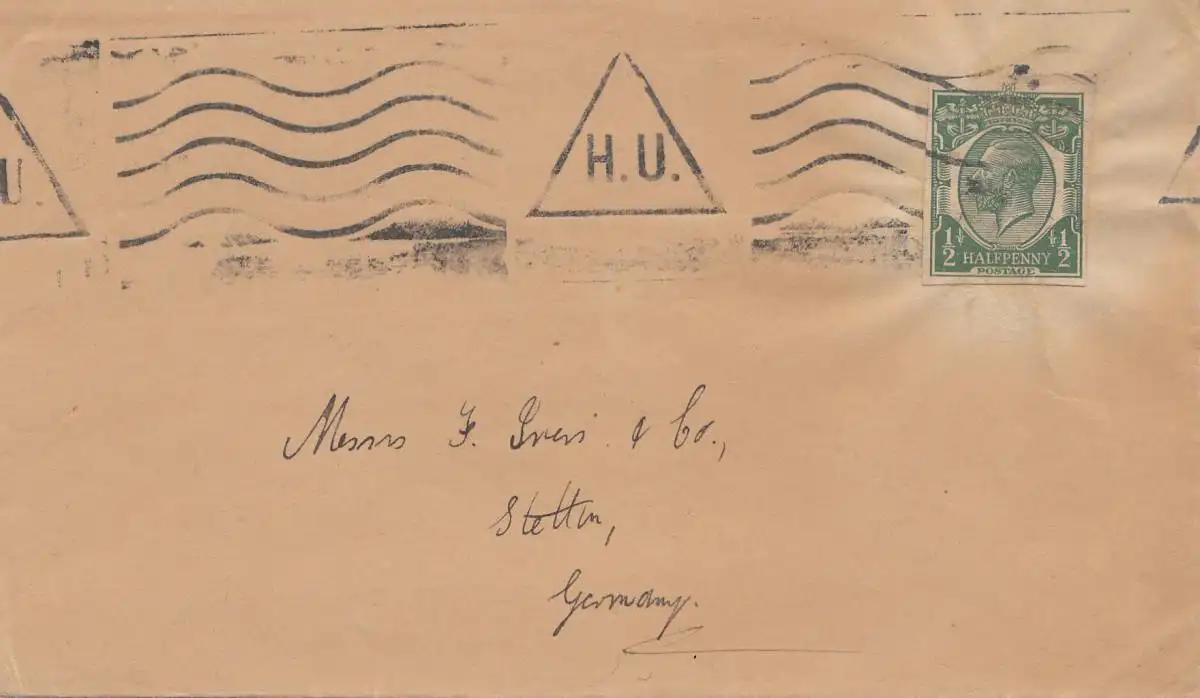 U.
H.U.
½ ½
HALFPENNY
POSTAGE
Messrs F. & Co.,
Stettin,
Germany.